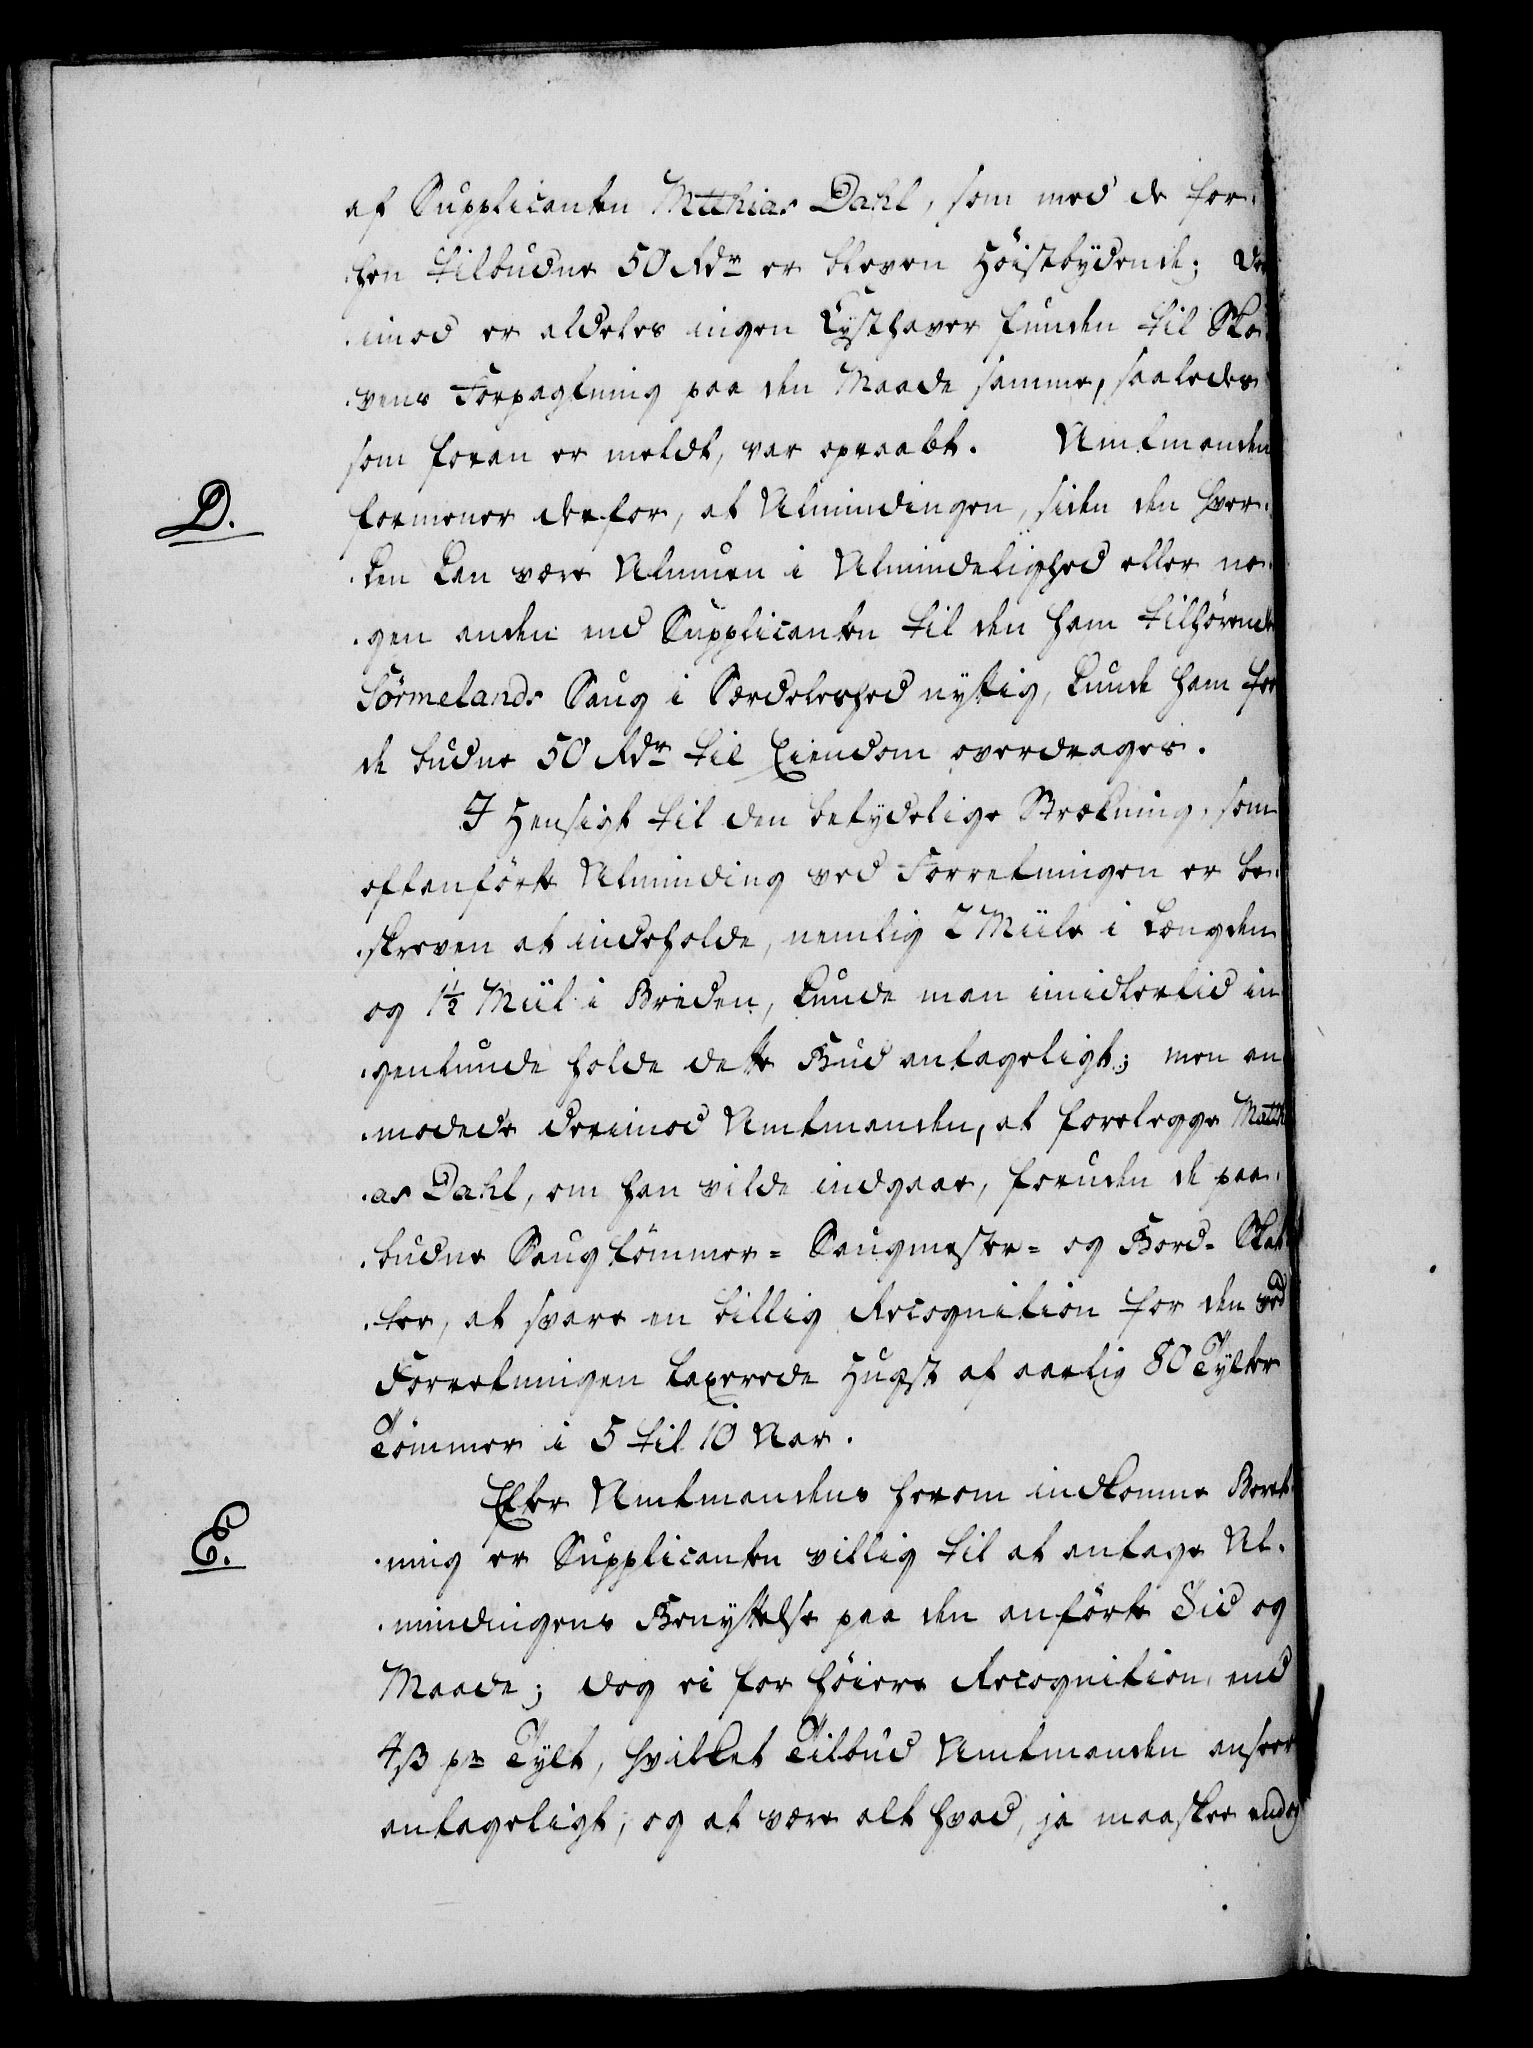 af Supplicanten Mtthias Dahl, som med de for-
hen tilbudne 50 Rdr er bleven Höistbydende; der
imod er aldeles ingen Lysthaver funden til Sko-
vens Forpagtning paa den Maade samme, saaledes
som foran er meldt, var opraabt. Amtmanden
D.
formener derfor, at Almindingen, siden den hver-
ken kan være Almuen i Almindelighed eller no-
gen anden end Supplicanten til den ham tilhörende
Sörmelands Saug i Særdeleshed nyttig, kunde ham for
de budne 50 Rdr til Eiendom overdrages.
I Hensigt til den betydelige Strækning, som
oftanförte Alminding ved Forretningen er be-
skreven at indeholde, nemlig 2 Miile i Længden
og 1½ Miil i Breden, kunde man imidlertid in-
genlunde holde dette Bud antageligt; men an-
modede derimod Amtmanden, at forelegge Matthi-
as Dahl, om han vilde indgaae, foruden de paa-
budne Saugtömmer- Saugmester- og Bord- Skat-
ter, at svare en billig Recognition for den ved
Forretningen taxerede Hugst af aarlig 80 Tylter
Tömmer i 5 til 10 Aar.
E.
Efter Amtmandens herom indkomne Beret-
ning er Supplicanten villig til at antage Al-
mindingens Benyttelse paa den anförte Tid og
Maade; dog ei for höiere Recognition, end
4 ß pr Tylt, hvilket Tilbud Amtmanden anseer
antageligt, og at være alt hvad, ja maaskee endog